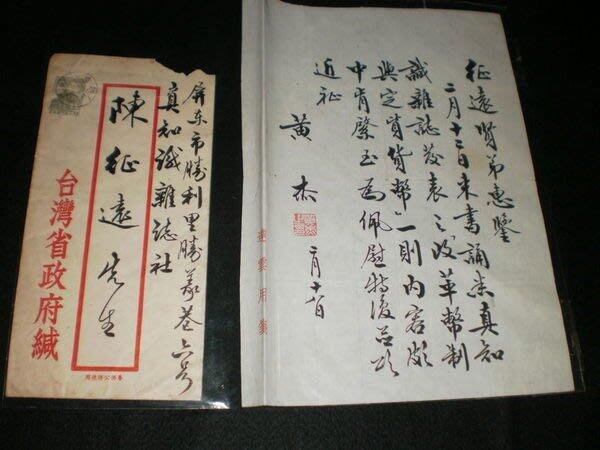 屏东市勝利里勝義巷六号
真知識雜誌社
陳征遠先生
台灣省政府緘
征遠賢弟惠鑒
二月十二日来書誦悉真知
識雜誌發表之改革幣制
與定貨幣一則内容頗
中肯綮至為佩慰特復並頌
近祉
黄杰
達雲用箋